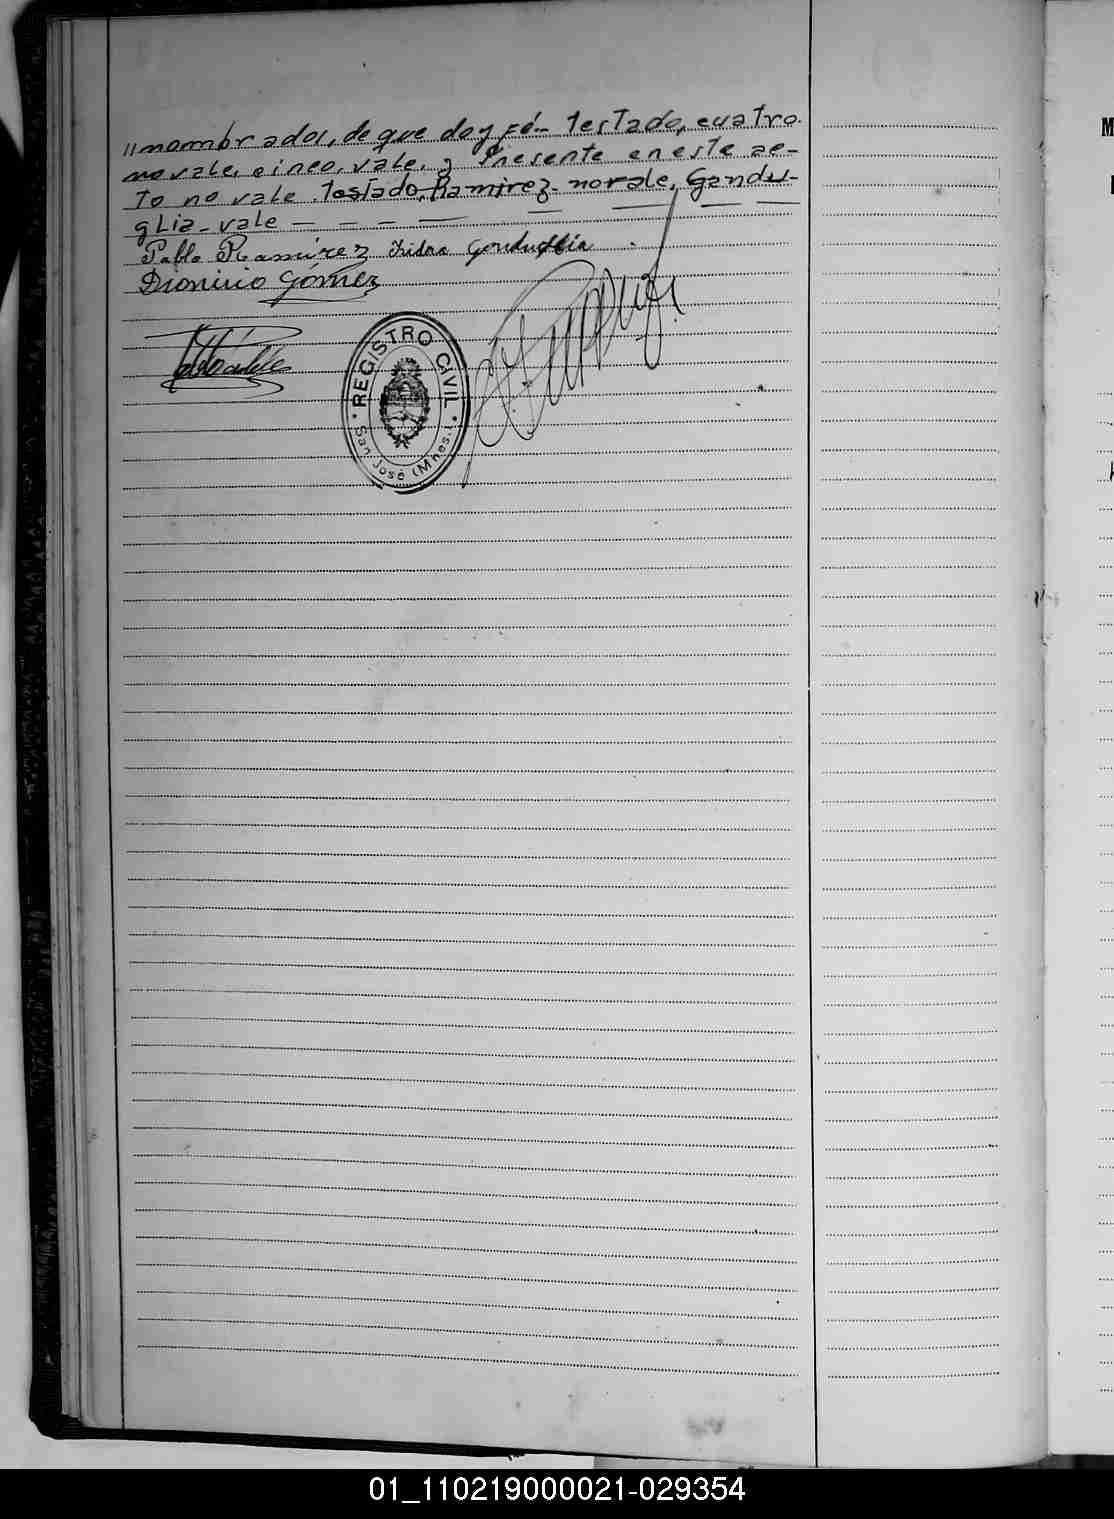 "nombrados, de que doy fé_ Testado, cuatro.
no vale, cinco, vale, y Presente en este ac-
to no vale. Testado, Ramirez. no vale, Gandu-
glia_ vale — — — —
Pablo Ramírez Isidra Gonduglia
Dionicio Gómez
REGISTRO CIVIL
San José (Mnes.)
M
01_110219000021-029354